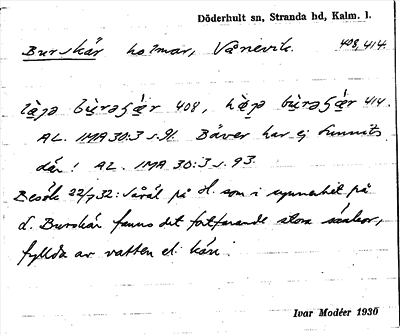 Döderhult sn, Stranda hd, Kalm. l.
Burskär holmar, Vånevik. 408, 414.
408, 414.
AL. IMA 30:3 s. 91. Bäver har ej funnits
där! AL. IMA 30:3 s. 93.
Besök 22/7 32: Såväl på H. som i synnerhet på
d. Burskär fanns det fortfarande stora
fyllda av vatten el. kärr.
Ivar Modéer 1930